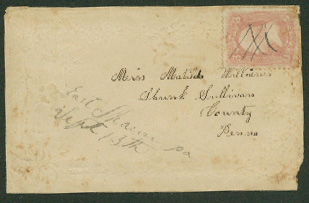 Miss Matilda
Shunk Sullivan
County
Penna
Sept 13th